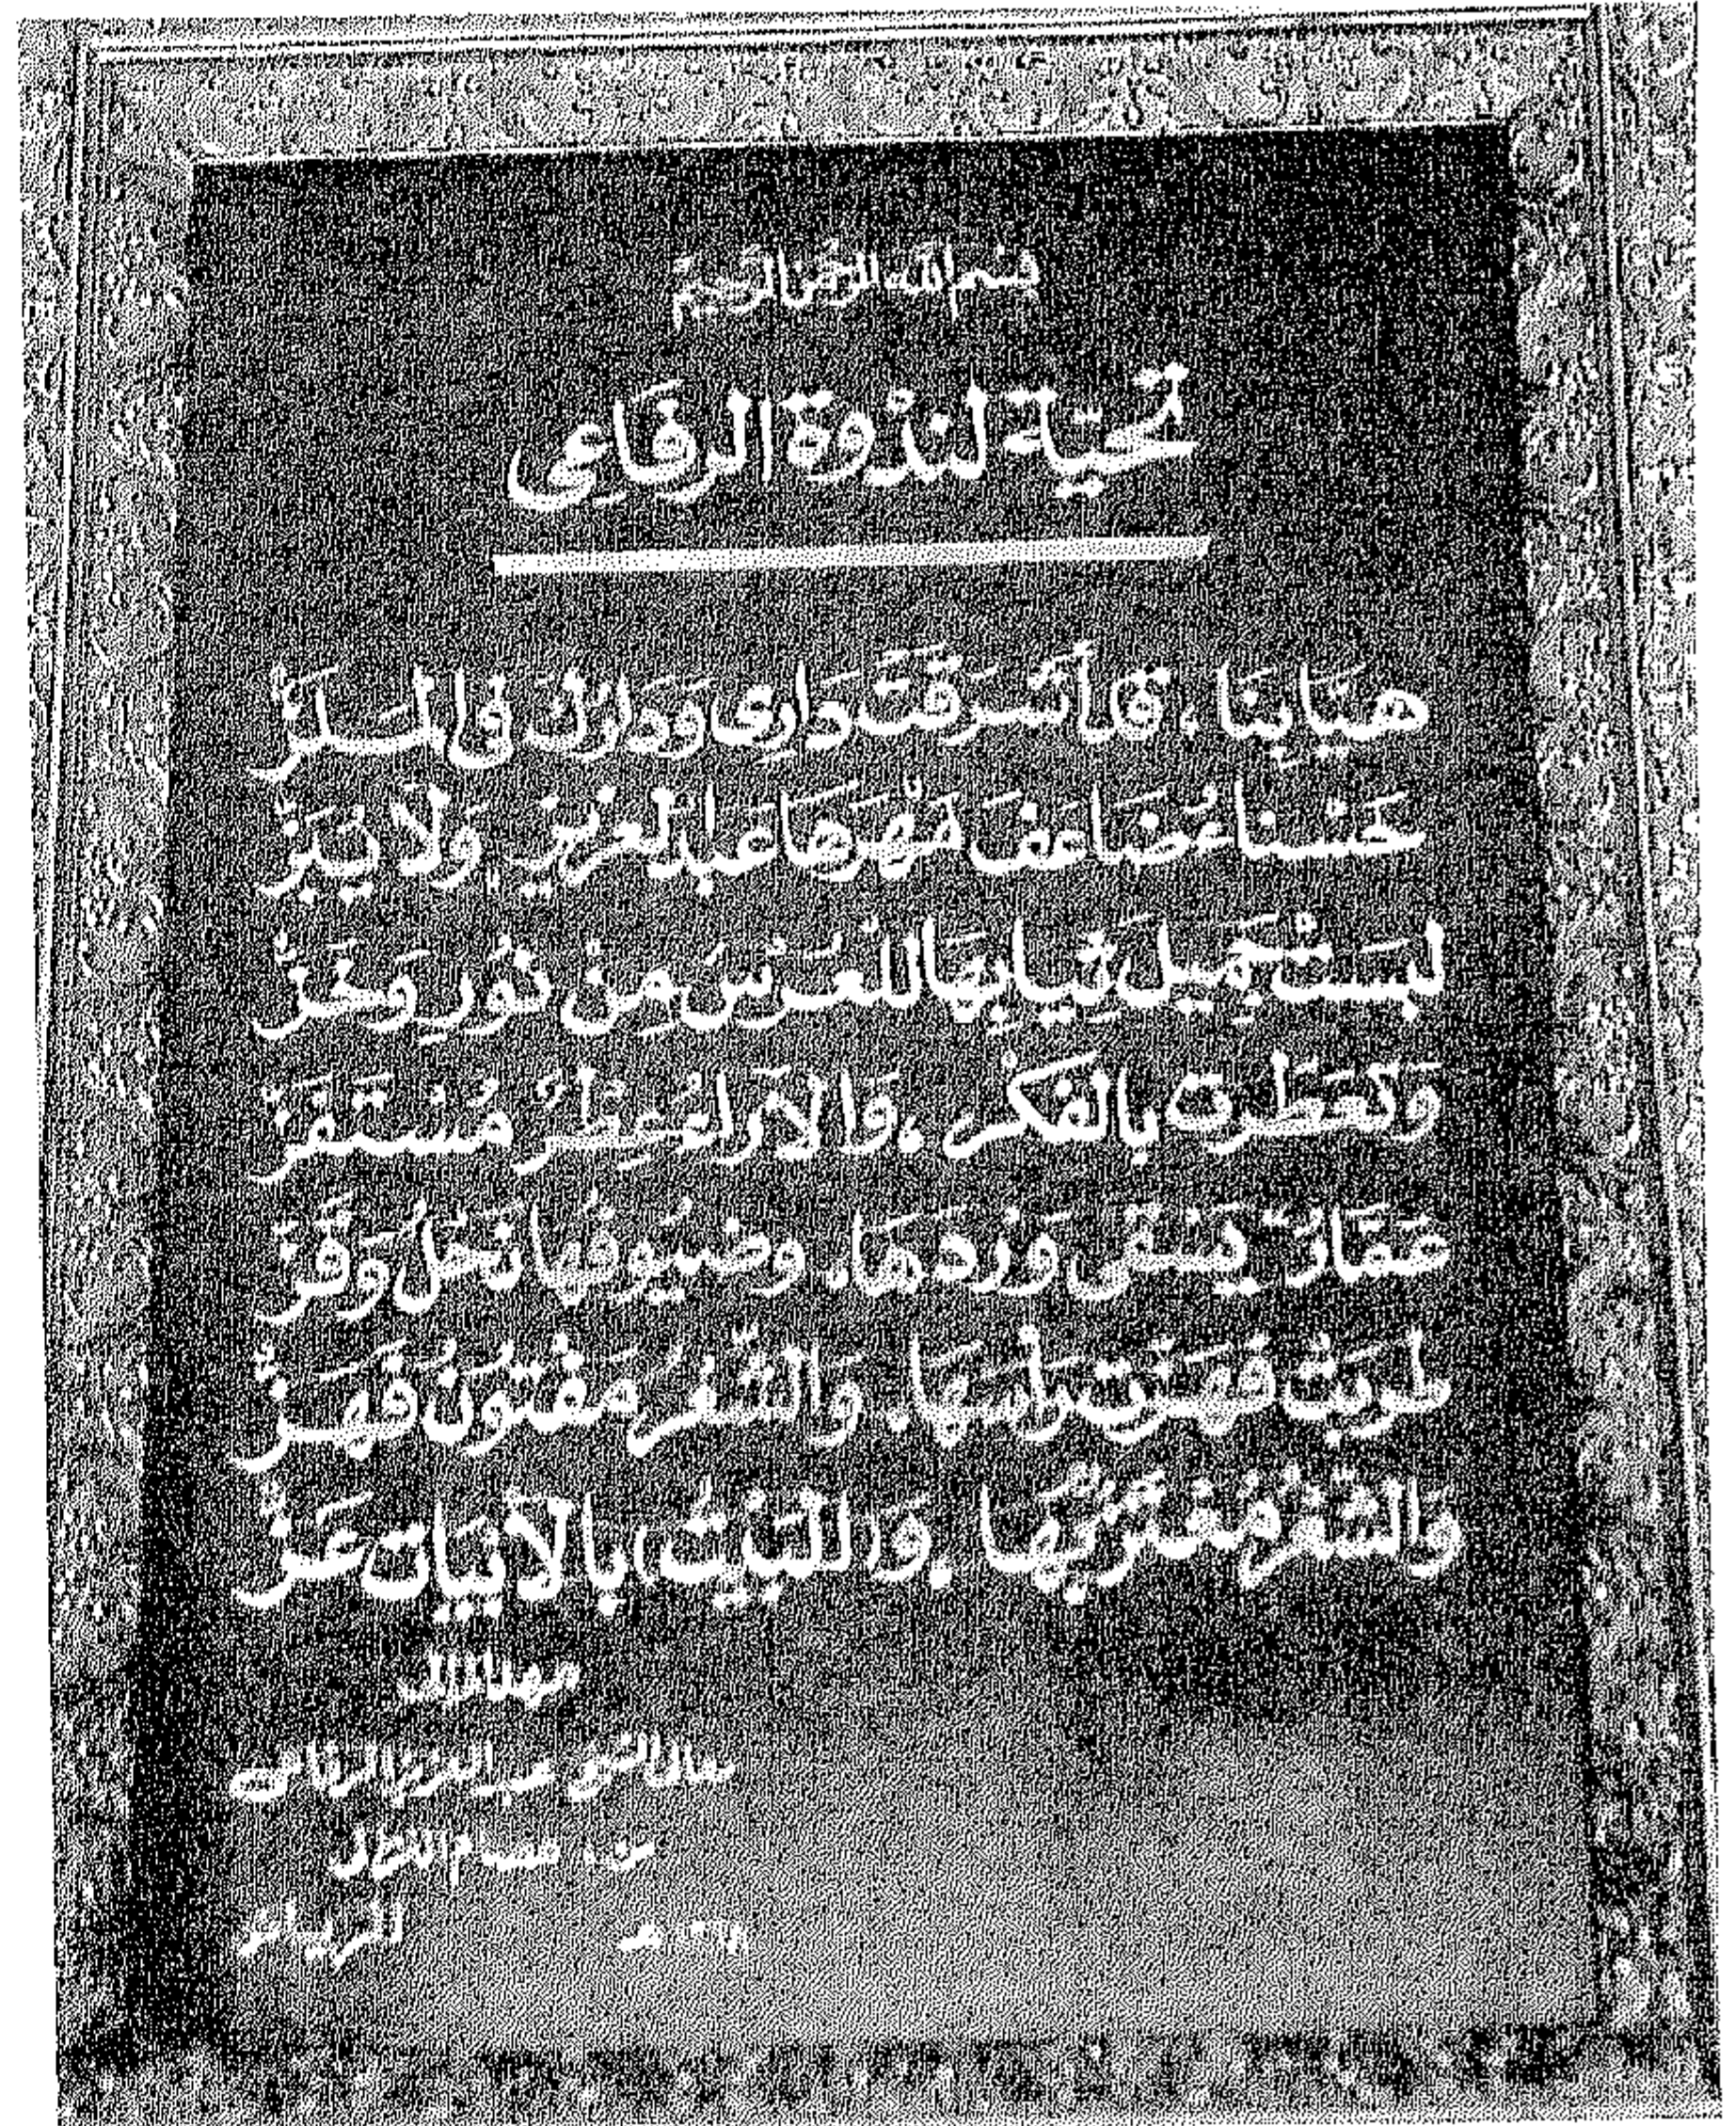 بسم الله الرحمن الرحيم
تحيّة لندْوة الرفَاعى
هيَا بِنَا ، قد أشرَقَتْ دَارِى وَدَارُكَ فى
حَسْنَاءُ ضَاعَفَ مَهْرَهَا عَبدُ العزيزِ وَلَا
لبسَتْ جَمِيلَ ثِيَابِهَا للعُرْسِ مِنْ نُورٍ وَخَزّْ
وَتَعَطَّرت بالفكْرِ ، وَالآرَاءُ عِطْرٌ مُسْتَفَزّْ
عَقَّادٌ يَسْقى وَرْدهَا ، وضُيُوفُهَا نَحْلٌ وَقَزّْ
طربَتْ فَهَزَّت رَأْسهَا ، وَالشّعْرُ مَفْتُونٌ فَهَزّْ
وَالشّعْرُ مُعْتَزٌّ بِهَا ، وَ(البَيْتُ) بالأبيَات عَزّْ
مهداة الى
معالى الشيخ عبد العزيز الرفاعى
من : عصام الغزالى
الرياض هـ